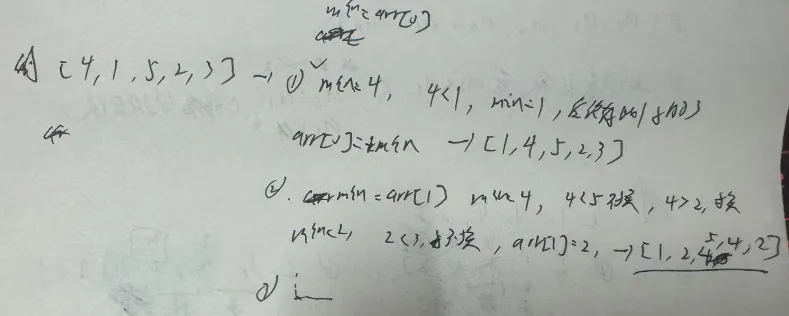 min=arr[0]
例 [4,1,5,2,3] → ① min=4, 4<1, min=1,
arr[0]=min → [1,4,5,2,3]
②. min=arr[1] min=4, 4<5 不换, 4>2, 换
min=2, 2<3, 不换, arr[1]=2, → [1,2,5,4,2]